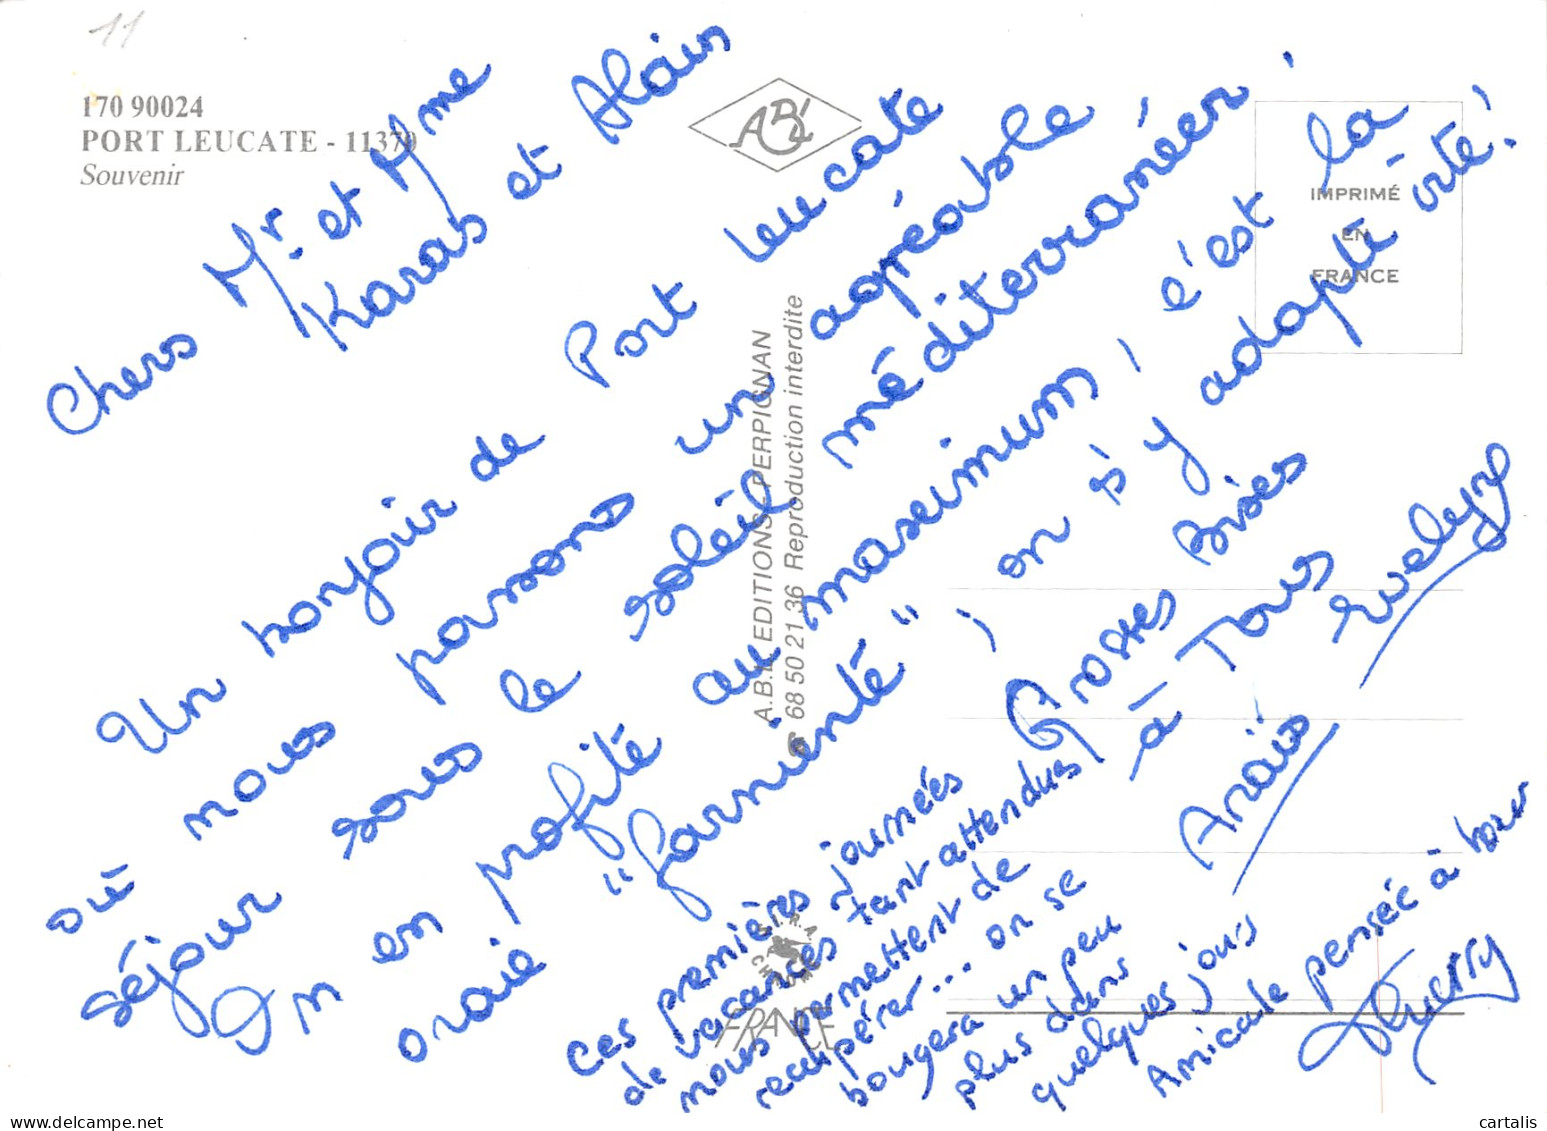 11
170 90024
PORT LEUCATE - 11370
Souvenir
ABL
IMPRIMÉ
EN
FRANCE
A.B.L. EDITIONS - PERPIGNAN
68 50 21 36 Reproduction interdite
FRANCE
Chers Mr. et Mme
Karas et Alain
Un bonjour de Port Leucate
où nous passons un agréable
séjour sous le soleil méditerranéen !
On en profite au maximum, c'est la
vraie "farniente", on s'y adapte vite !
Grosses Bises
à Tous
Evelyne
Anaïs
Ces premières journées
de vacances tant attendues
nous permettent de
récupérer... on se
bougera un peu
plus dans
quelques jours
Amicale pensée à tous
Thierry
cartalis